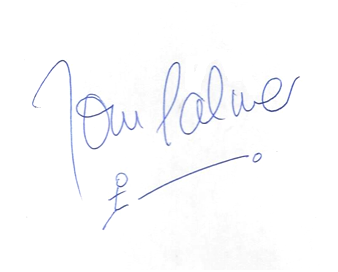 Tom Palmer